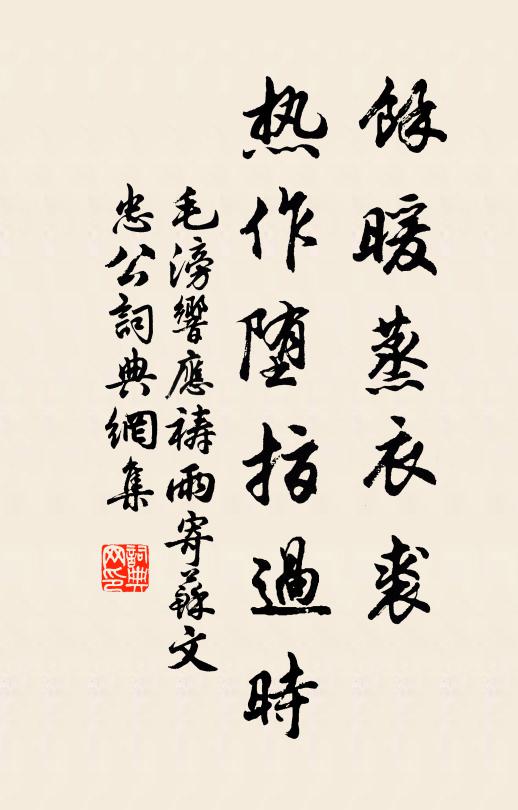 餘暖蒸衣裘
热作堕指過時
毛滂響應禱雨寄蘇文
忠公詞典網集
詞典網印